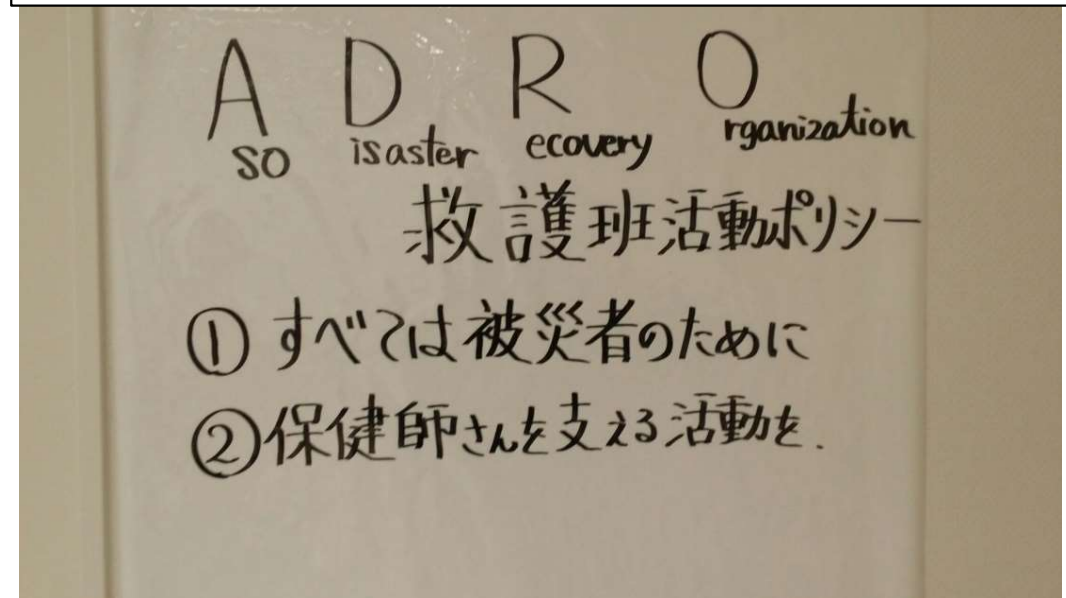 A D R O
so isaster ecovery rganization
救護班活動ポリシー
① すべては被災者のために
②保健師さんを支える活動を.